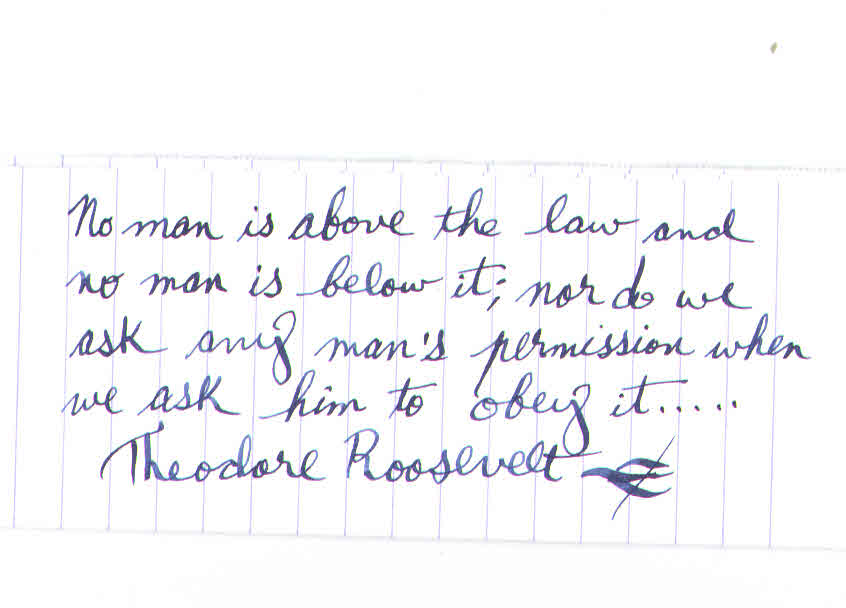 No man is above the law and
no man is below it; nor do we
ask any man's permission when
we ask him to obey it.....
Theodore Roosevelt